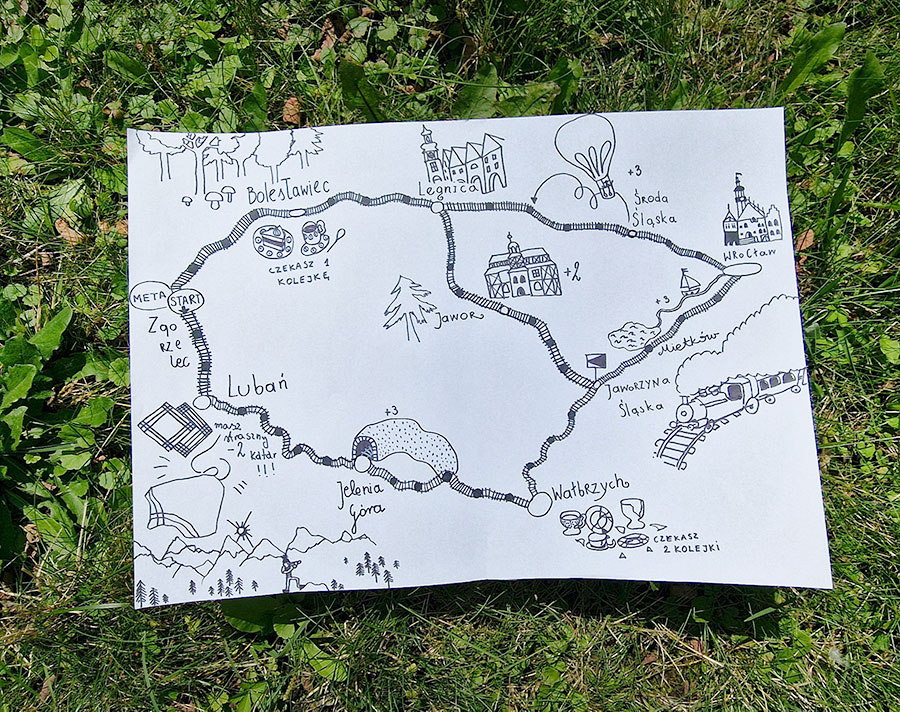 Bolesławiec
Legnica
+3
Środa
Śląska
Wrocław
CZEKASZ 1
KOLEJKĘ
+2
META
START
Zgo
rze
lec
JAWOR
+3
Mietków
Jaworzyna
Śląska
Lubań
masz
straszny
-2
katar
!!!
+3
Jelenia
Góra
Wałbrzych
CZEKASZ
2 KOLEJKI